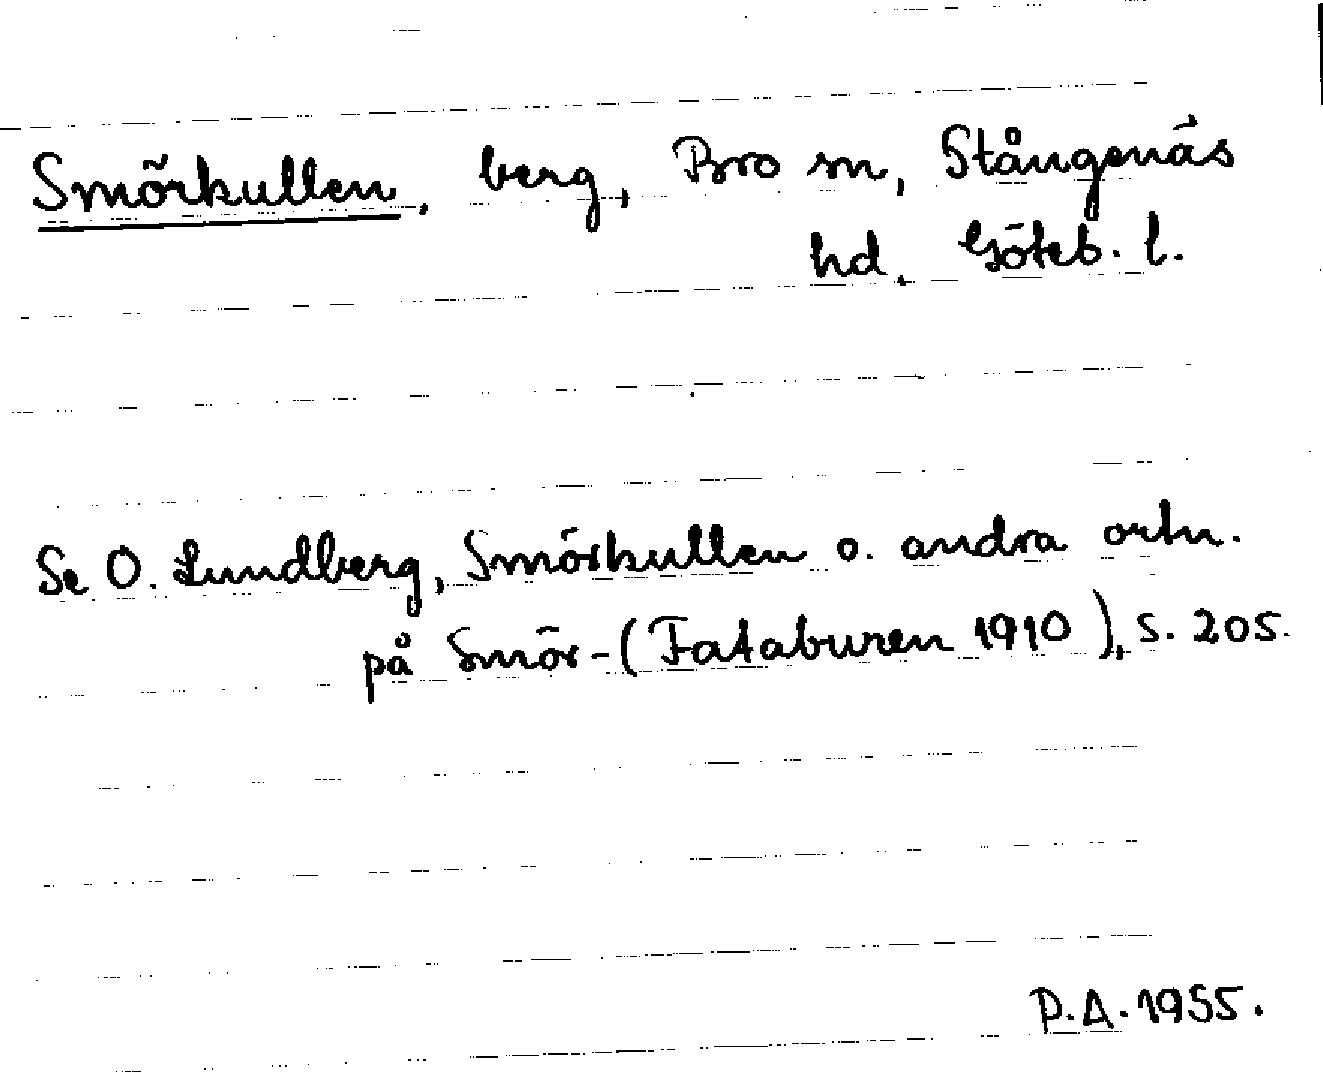 Smörkullen, berg, Bro sn, Stångenäs
hd, Göteb. l.
Se O. Lundberg, Smörkullen o. andra ortn.
på Smör- (Fataburen 1910), s. 205.
P.A. 1955.